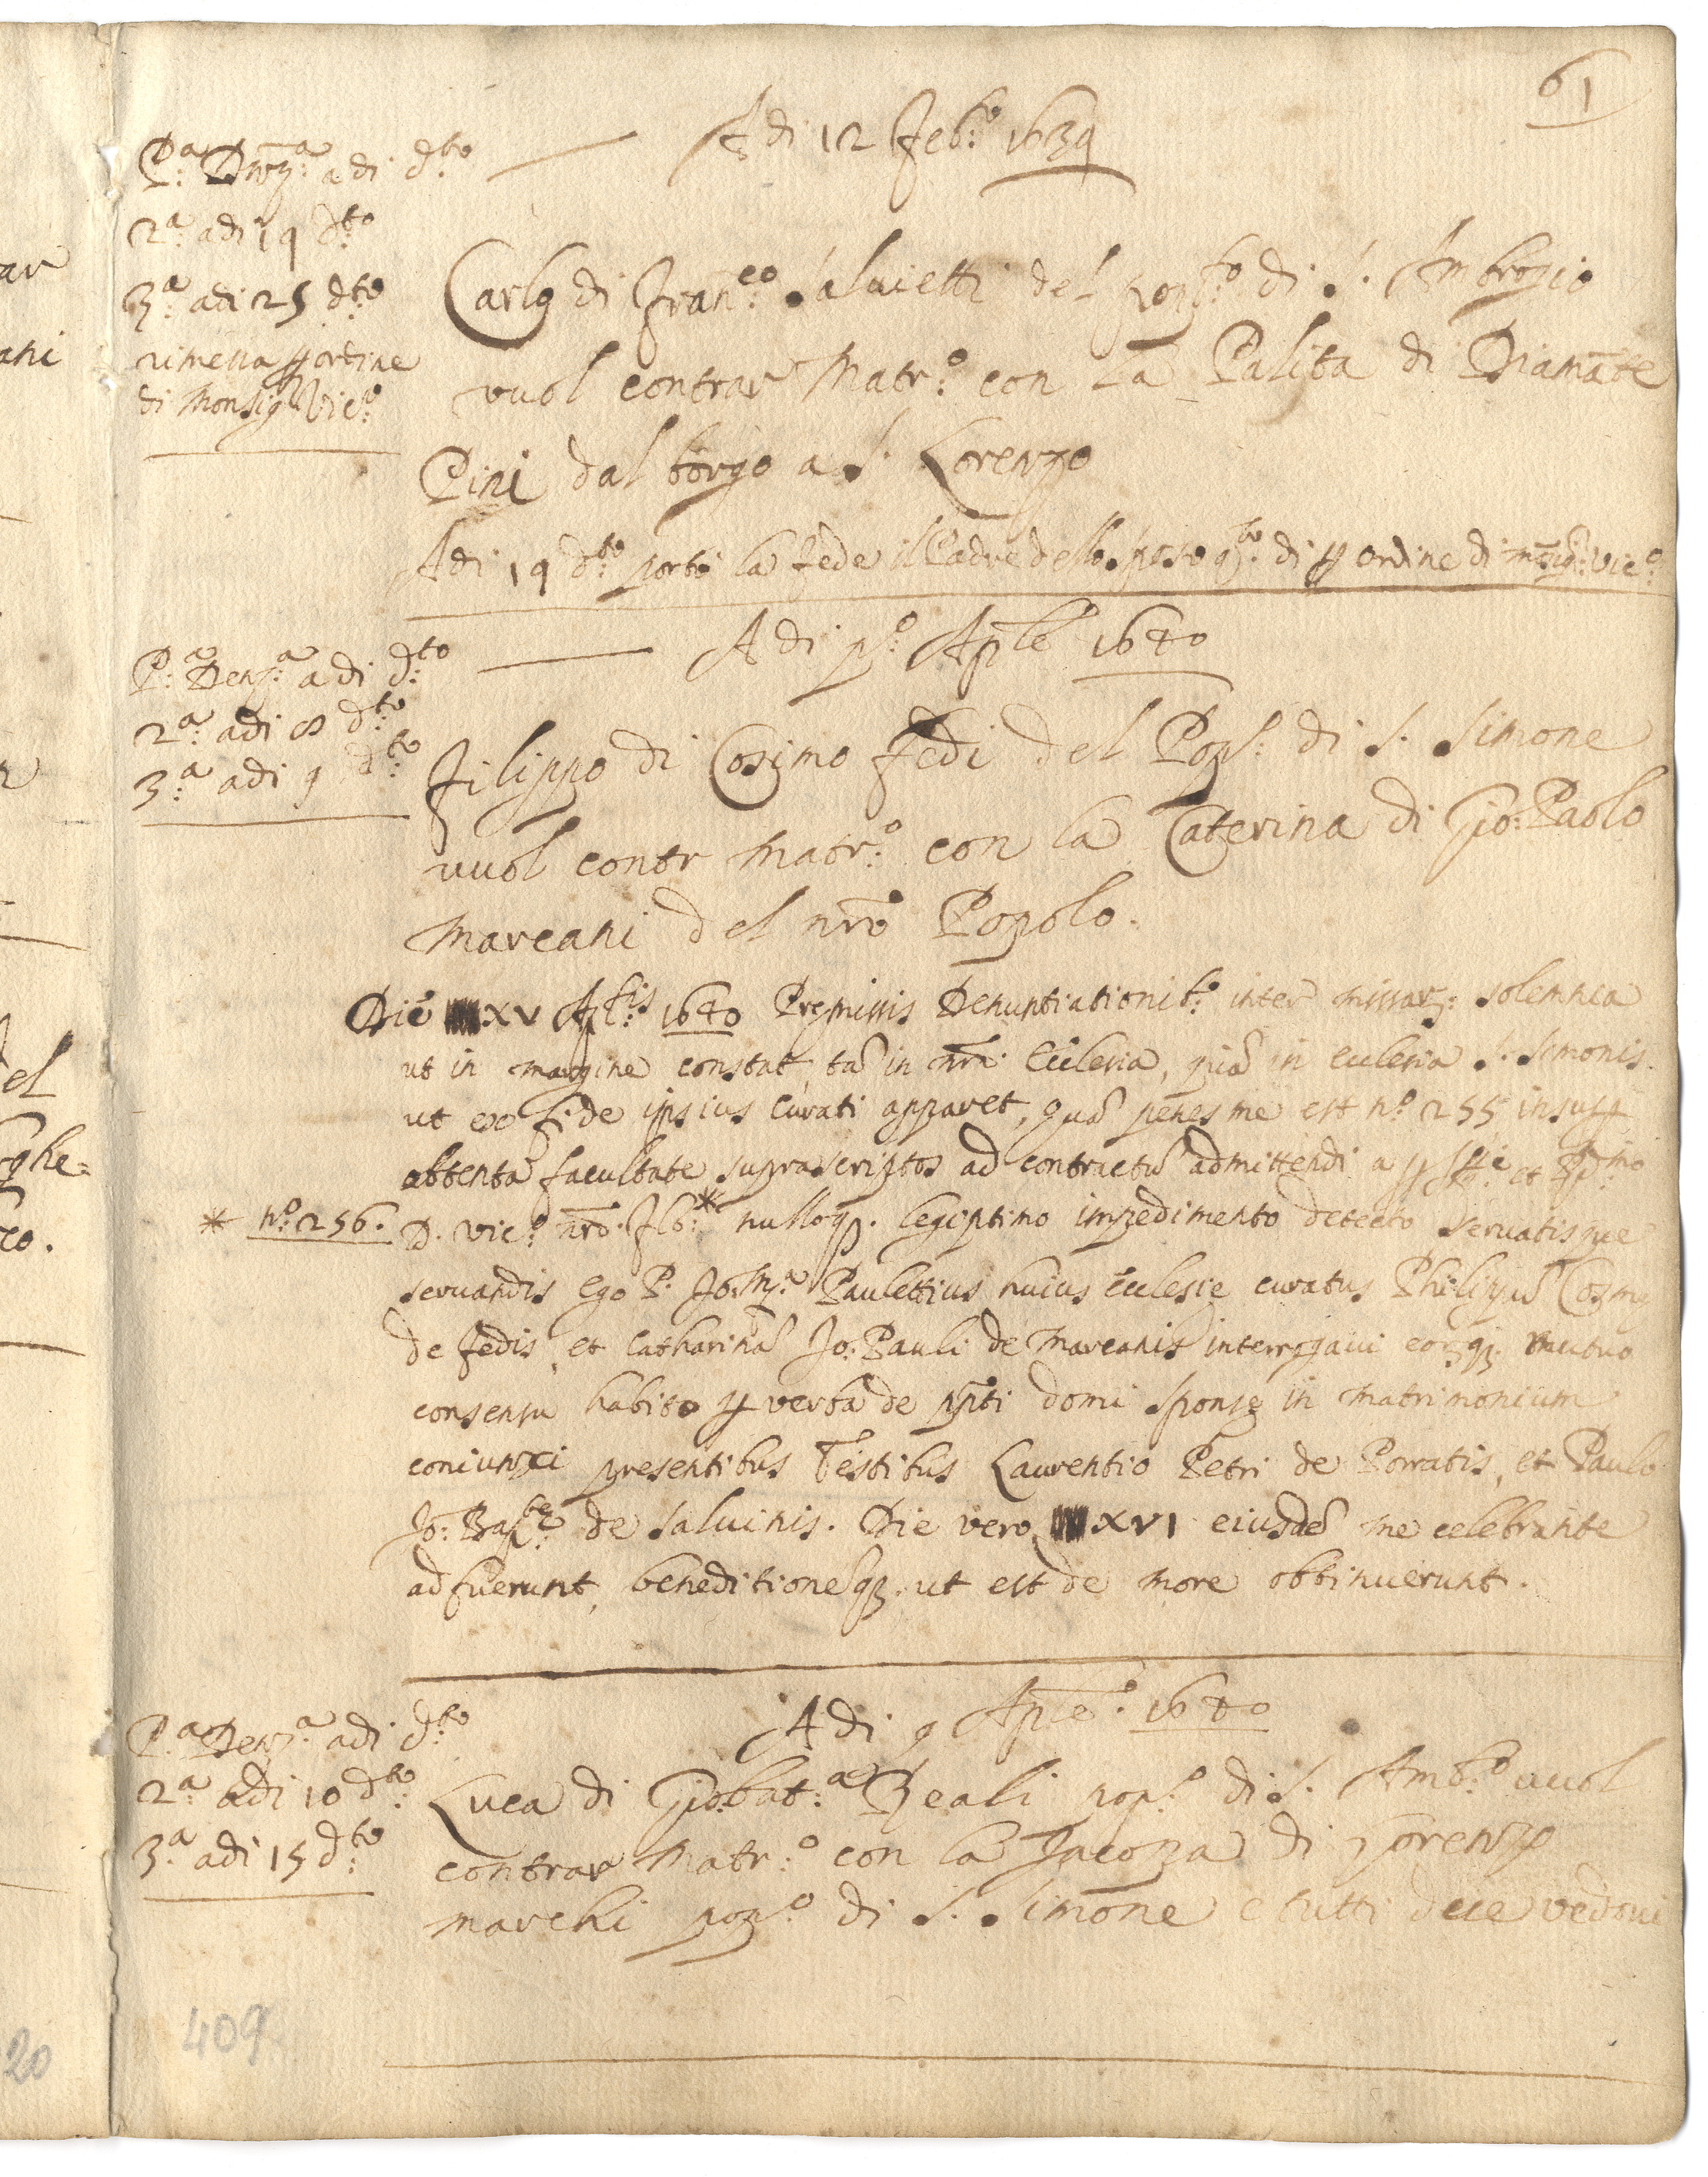 61
Adi 12 Feb:o 1639
P:a Dnz:a adi d:to
2:a adi 19 d:to
3:a adi 25 d:to
rimessa p ordine
di Monsig Vic:o
Carlo di Fran:co Salvietti del pop:o di S. Ambrogio
vuol contrar Matr:o con la Palita di Diamāte
Pini dal borgo a S. Lorenzo
Adi 19 d:to portò la fede il Padre dello sposo di p ordine di mōsig: Vic:o
Adi p:o Aple 1640
P:a Denz:a adi d:to
2:a adi 8 d:to
3:a adi 9 d:to
Filippo di Cosimo Fedi del Pop: di S. Simone
vuol contr Matr:o con la Caterina di Gio: Paolo
Marcani del nrō Popolo.
Die XV Aplis 1640 Premissis Denuntiationib:s inter missar: solemnia
ut in margine constat, tā in nrā Ecclesia, quā in Ecclesia S. Simonis.
ut ex fide ipsius Curati apparet, quā penes me est n:o 255 insup
obtenta facultate suprascriptos ad contractū admittendi a p et R:mo
* n:o 256.
D. Vic:o nrō Flo:* nulloq; legiptimo impedimento detecto servatisque
servandis Ego P. Jo: M:a Paulettius huius Ecclesie curatus Philippū Cosmę
de Fedis, et Catharinā Jo: Pauli de Marcanis interrogavi eorq; mutuo
consensu habito p verba de pñti domi sponsę in matrimonium
coniunxi presentibus Testibus Laurentio Petri de Porratis, et Paulo
Jo: Bap:te de Salvinis. Die vero XVI eiusdē me celebrante
adfuerunt, beneditionesq; ut est de more obtinuerunt.
Adi 9 Aple:o 1640
P:a Denz:a adi d:to
2:a adi 10 d:to
3:a adi 15 d:to
Luca di Giobat:a Zeali pop:o di S. Amb:o vuol
contrar Matr:o con la Jacopa di Lorenzo
Marchi pop:o di S. Simone e tutti dcie vedovi
409